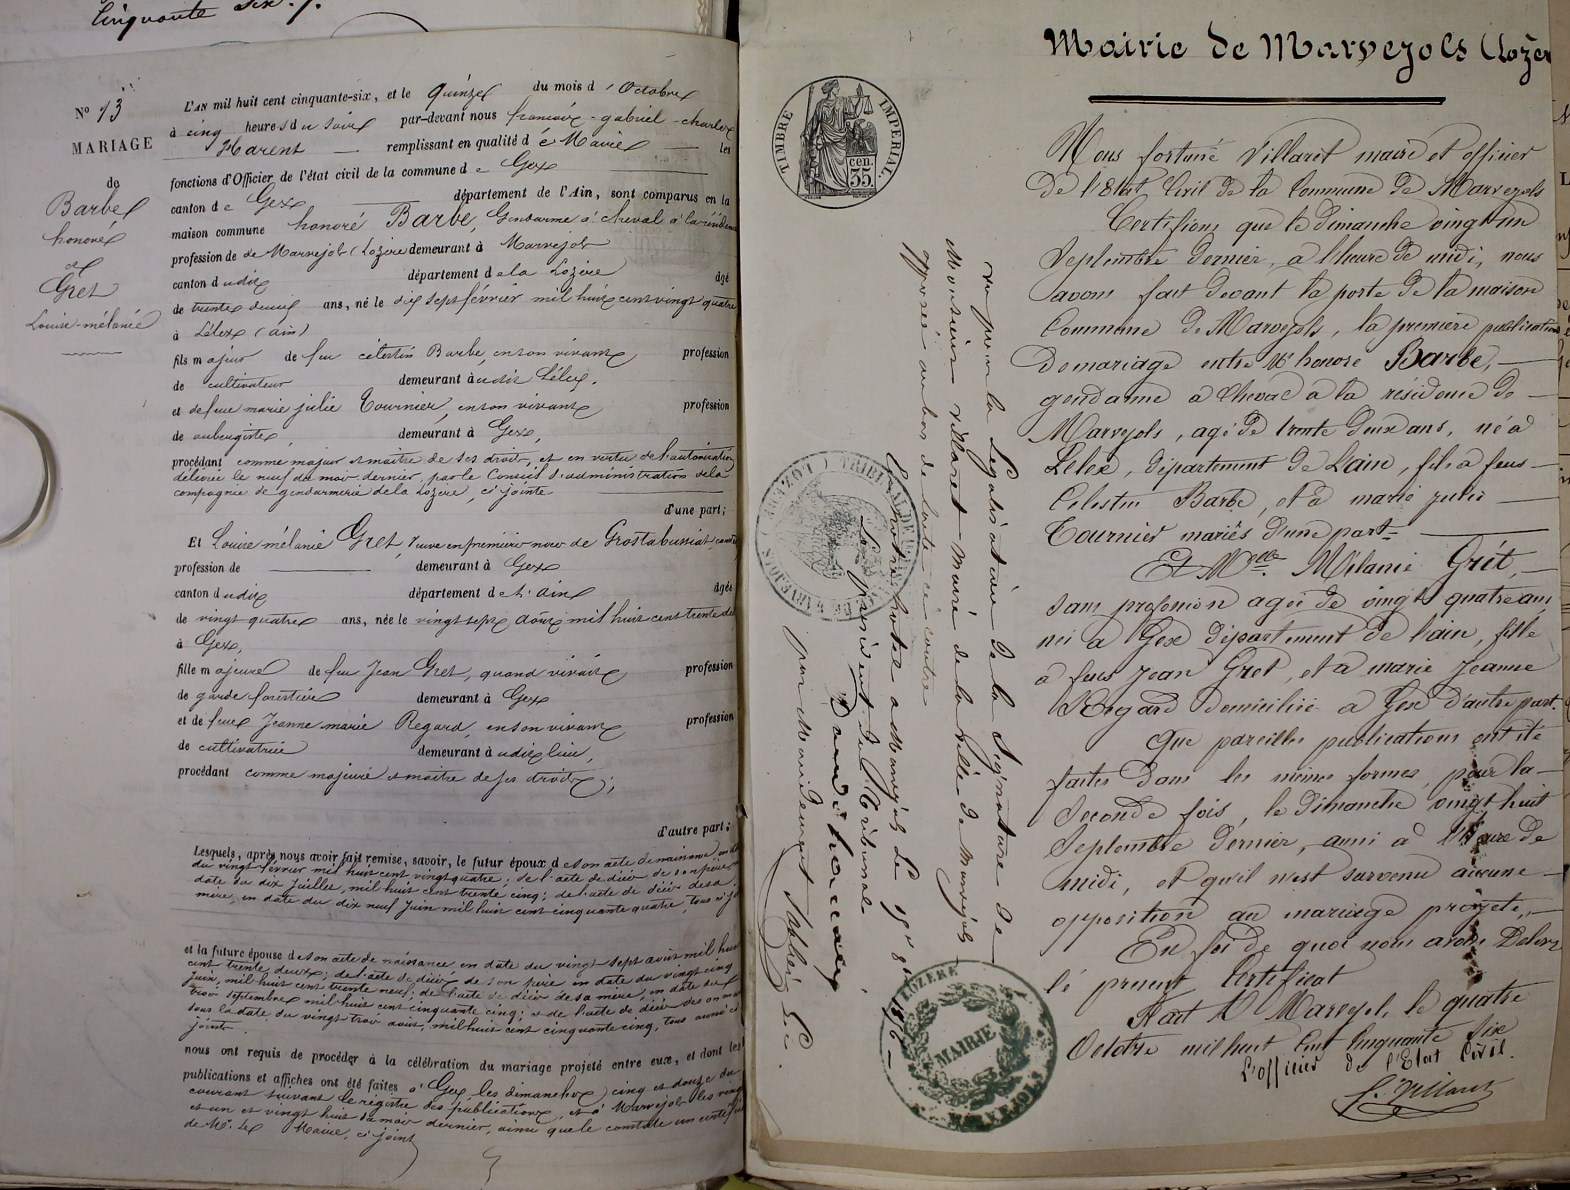 Cinquante six ./.
N° 13
MARIAGE
de
Barbe
honoré
et
Gret
Louise-mélanie
L'AN mil huit cent cinquante-six, et le quinze du mois d'Octobre
à cinq heures du soir par-devant nous françois-gabriel-charles
Harent remplissant en qualité de Maire les
fonctions d'Officier de l'état civil de la commune de Gex
canton de Gex département de l'Ain, sont comparus en la
maison commune honoré Barbe, Gendarme à cheval à la résidence
profession de de Marvejols (Lozère demeurant à Marvejols
canton dudit département de la Lozère âgé
de trente deux ans, né le dix sept février mil huit cent vingt quatre
à Lélex (ain)
fils majeur de feu célestin Barbe, en son vivant profession
de cultivateur demeurant à udit Lélex.
et de feue marie julie Tournier, en son vivant profession
de aubergiste, demeurant à Gex,
procédant comme majeur et maître de ses droits, et en vertu de l'autorisation
délivrée le neuf du mois dernier, par le Conseil d'administration de la
compagnie de gendarmerie de la Lozère, ci jointe
d'une part;
Et Louise mélanie Gret, veuve en première noce de Grostabussiat
profession de demeurant à Gex
canton dudit département de l'Ain âgée
de vingt-quatre ans, née le vingt sept août mil huit cent trente de
à Gex,
fille majeure de feu Jean Gret, quand vivait profession
de garde forestier demeurant à Gex
et de feue Jeanne marie Regard, en son vivant profession
de cultivatrice demeurant à udit lieu,
procédant comme majeure et maître de ses droits;
d'autre part;
Lesquels, après nous avoir fait remise, savoir, le futur époux de son acte de naissance en date
du vingt février mil huit cent vingt quatre; de l'acte de décès de son père
date du dix Juillet, mil huit cent trente cinq; de l'acte de décès de sa
mère, en date du dix neuf Juin mil huit cent cinquante quatre, tous ci j
et la future épouse de son acte de naissance en date du vingt-sept août mil huit
cent trente deux; de l'acte de décès de son père en date du vingt cinq
Juin, mil huit cent trente neuf; de l'acte de décès de sa mère, en date du
trois septembre mil huit cent cinquante cinq; et de l'acte de décès de son m
sous la date du vingt trois août, mil huit cent cinquante cinq, tous aussi ci
joints.
nous ont requis de procéder à la célébration du mariage projeté entre eux, et dont les
publications et affiches ont été faites à Gex, les dimanches cinq et douze du
courant suivant le registre des publications, et à Marvejols les vingt
et un et vingt huit du mois dernier, ainsi que le constate un certif
de Mr. le Maire, ci joint
Mairie de Marvejols (Lozèr
TIMBRE IMPERIAL.
cen.
35
Nous fortuné Villaret maire et officier
de l'Etat Civil de la Commune de Marvejols
Certifions que le dimanche vingt un
Septembre dernier, à l'heure de midi, nous
avons fait devant la porte de la maison
Commune de Marvejols, la première publication
de mariage entre Mr honoré Barbe,
gendarme à cheval à la résidence de
Marvejols, agé de trente deux ans, né à
Lelex, département de L'ain, fils à feus
Célestin Barbe, et à marie julie
Tournier mariés d'une part
Et Melle. Mélanie Grét,
sans profession agée de vingt quatre ans
née à Gex département de l'ain, fille
à feus Jean Gret, et à marie Jeanne
Regard domiciliée à Gex d'autre part.
Que pareilles publications ont été
faites dans les mêmes formes, pour la
Seconde fois, le dimanche vingt huit
Septembre dernier, aussi à l'heure de
midi, et qu'il n'est survenu aucune
opposition au mariage projeté,
En foi de quoi nous avons Délivré
lé présent Certificat
Fait à Marvejols, le quatre
Octobre mil huit Cent Cinquante six
L'officier de l'Etat Civil.
f. Villaret
vu pour la Légalisation de la Signature de
Monsieur Villaret maire de la ville de Marvejols
apposée au bas de l'acte ci contre
En notre hotel à Marvejols Le 4 8bre 1856
Le président du Tribunal
par Mandement
TRIBUNAL DE
MARVEJOLS (LOZÈRE)
LOZÈRE
MAIRIE
MARVEJOLS